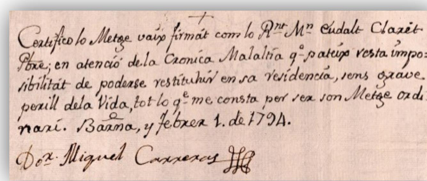 Certifico lo Metge vaix firmát com lo Rnt. Mn. Eudalt Claret
Pbre; en atenció de la Cronica Malaltia qe. pateix resta impo-
sibilitát de poderse restituhir en sa residencia, sens grave
perill dela Vida, tot lo qe. me consta per ser son Metge ordi
nari. Barna, y febrer 1. de 1794.
Dor. Miquel Carreras